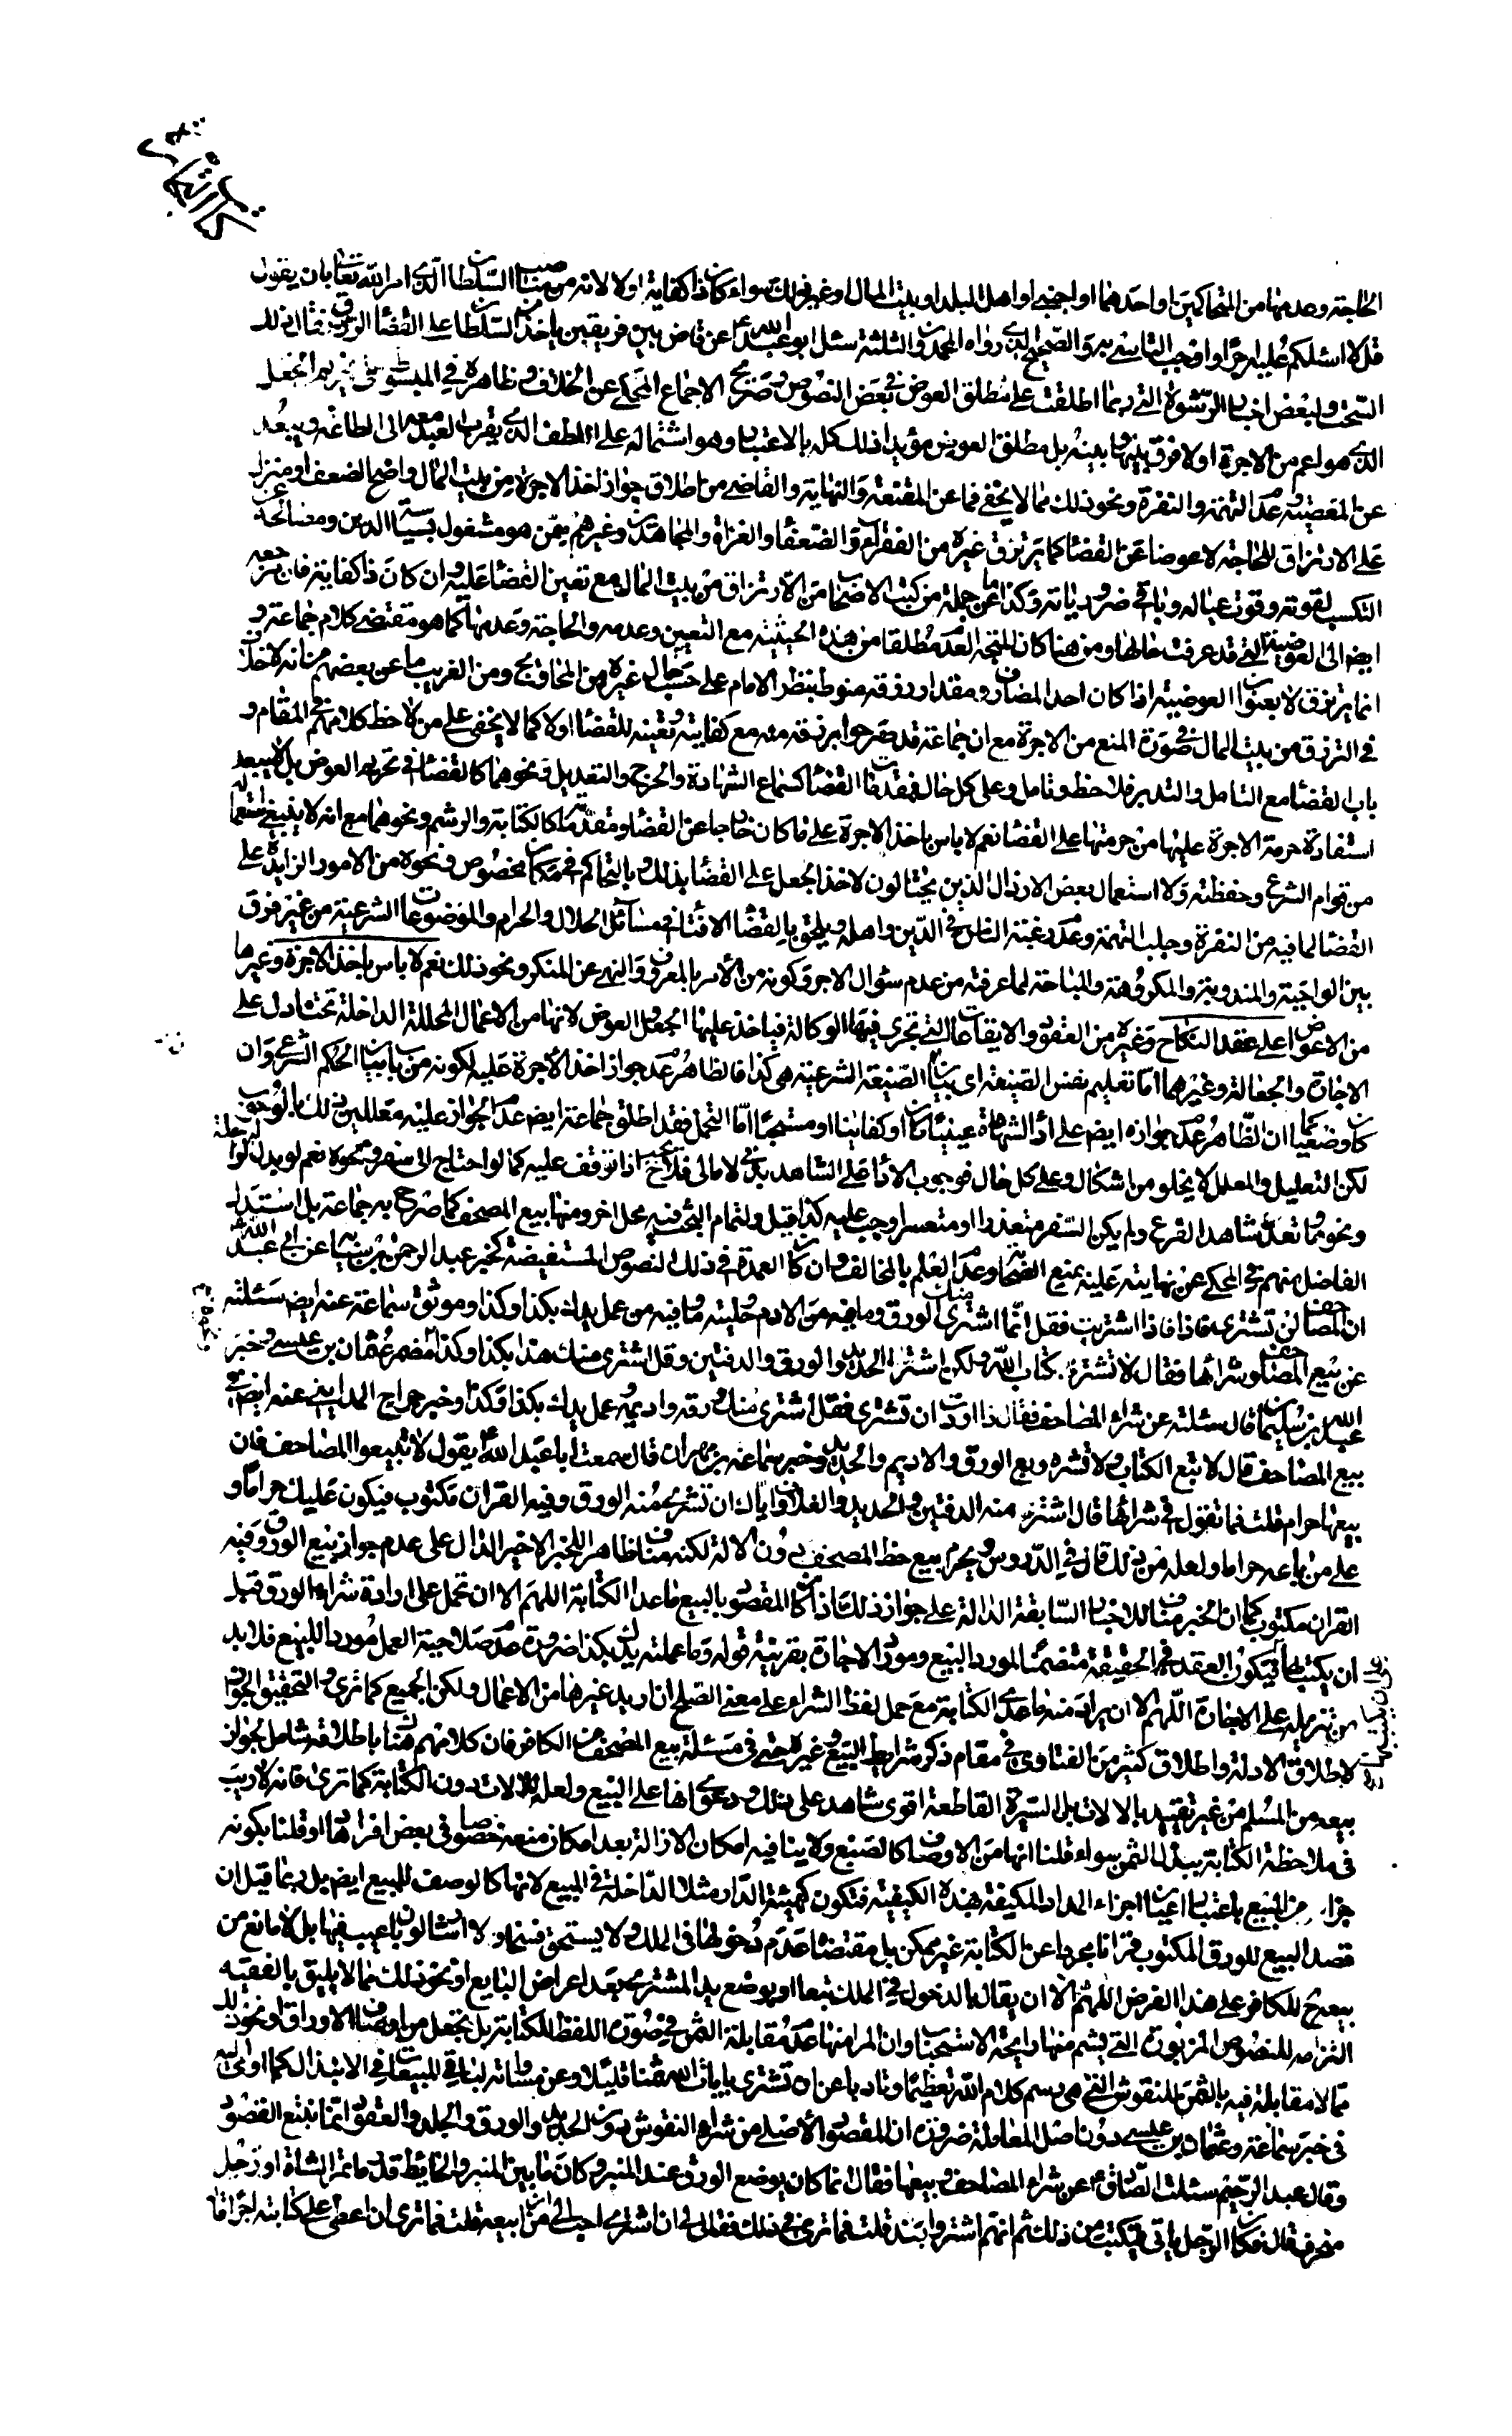 الحاجة وعدمها من المتحاكمين او احدهما او اجنبي او اهل البلد او بيت المال او غير ذلك سواء كان ذا كفاية او لا لانه من مناصب السلطان الذي امر الله تعالى بان يقول
قل لا اسئلكم عليه اجرا واوجب التاسي به و الصحيح الذي رواه المحمدون الثلثة سئل ابو عبد الله ع عن قاض بين فريقين ياخذ من السلطان على القضاء الرزق فقال ذلك
السحت ولبعض اخبار الرشوة التي ربما اطلقت على مطلق العوض في بعض النصوص و صريح الاجماع المحكي عن الخلاف وظاهره في المبسوط على تحريم الجعل
الذي هو اعم من الاجرة او لا فرق بينها وبينه بل مطلق العوض مؤيدا ذلك كله بالاعتبار وهو اشتماله على اللطف الذي يقرب العبد معه الى الطاعة ويبعد
عن المعصية وعدم التهمة والنفرة ونحو ذلك مما لا يخفى فما عن المقنعة والنهاية والقاضي من اطلاق جواز اخذ الاجرة من بيت المال واضح الضعف او منزل
على الارتزاق للحاجة لا عوضا عن القضاء كما يرتزق غيره من الفقراء والضعفاء والغزاة والمجاهدين وغيرهم ممن هو مشغول بسياسة الدين ومصالحه عن
التكسب لقوته وقوت عياله وباقي ضروراته وكذا ما عن جملة من كتب الاصحاب من الارتزاق من بيت المال مع تعين القضاء عليه وان كان ذا كفاية فان مرجعه
ايضا الى العوضية التي قد عرفت حالها ومن هنا كان المتجه العدم مطلقا من هذه الحيثية مع التعيين وعدمه والحاجة وعدمها كما هو مقتضى كلام جماعة و
انما يرتزق لا بعنوان العوضية اذا كان احد المصارف ومقدار رزقه منوط بنظر الامام على حسب حال غيره من المحاويج ومن الغريب ما عن بعضهم من انه لا خلاف
في الترزق من بيت المال في صورة المنع من الاجرة مع ان جماعة قد صرحوا برزقه منه مع كفايته وتعينه للقضاء اولا كما لا يخفى على من لاحظ كلامهم في المقام و
باب القضاء مع التامل والتدبر فلاحظ وتامل وعلى كل حال فمقدمات القضاء كسماع الشهادة والجرح والتعديل ونحوهما كالقضاء في تحريم العوض بل لا يبعد
استفادة حرمة الاجرة عليها من حرمتها على القضاء نعم لا باس باخذ الاجرة على ما كان خارجا عن القضاء ومقدماته كالكتابة والرسم ونحوهما مع انه لا ينبغي استعماله
من قوام الشرع وحفظته ولا استعمال بعض الارذال الذين يحتالون لاخذ الجعل على القضاء بذلك وبالتحاكم في مكان مخصوص ونحوه من الامور الزايدة على
القضاء لما فيه من النفرة وجلب التهمة وعدم رغبة الناس في الدين واهله ويلحق بالقضاء الافتاء في مسائل الحلال والحرام والموضوعات الشرعية من غير فرق
بين الواجبة والمندوبة والمكروهة والمباحة لما عرفته من عدم سؤال الاجر وكونه من الامر بالمعروف والنهي عن المنكر ونحو ذلك نعم لا باس باخذ الاجرة وغيرها
من الاعواض على عقد النكاح وغيره من العقود والايقاعات التي تجري فيها الوكالة فياخذ عليها الجعل والعوض لانها من الاعمال المحللة الداخلة تحت ما دل على
الاجارة والجعالة وغيرهما اما تعليم نفس الصيغة اي بيان الصيغة الشرعية هي كذا فالظاهر عدم جواز اخذ الاجرة عليه لكونه من باب بيان الحكم الشرعي وان
كان وضعيا كما ان الظاهر عدم جوازه ايضا على اداء الشهادة عينيا كان او كفائيا او مستحبا اما التحمل فقد اطلق جماعة ايضا عدم الجواز عليه معللين ذلك بالوجوب
لكن التعليل والمعلل لا يخلو من اشكال وعلى كل حال فوجوب الاداء على الشاهد بدني لا مالي فلا يجب اذا توقف عليه كما لو احتاج الى سفر ونحوه نعم لو بذل له الراحلة
ونحوها وتعذر شاهد الفرع ولم يكن السفر متعذرا او متعسرا وجب عليه كذا قيل ولتمام البحث فيه محل اخر ومنها بيع المصحف كما صرح به جماعة بل استدل
الفاضل منهم في المحكي عن نهايته عليه بمنع الصحابة وعدم العلم بالمخالف وان كان العمدة في ذلك النصوص المستفيضة كخبر عبد الرحمن بن سيابة عن ابي عبد الله ع
ان المصاحف لن تشترى فاذا اشتريت فقل انما اشتري منك الورق وما فيه من الادم وحليته وما فيه من عمل يدك بكذا وكذا وموثق سماعة عنه ايضا سئلته
عن بيع المصاحف وشرائها فقال لا تشتر كتاب الله ولكن اشتر الحديد والورق والدفتين وقل اشتري منك هذا بكذا وكذا ومضمر عثمان بن عيسى وخبر
عبد الله بن سليمان قال سئلته عن شراء المصاحف فقال اذا اردت ان تشتري فقل اشتري منك ورقه واديمه وعمل يدك بكذا وكذا وخبر جراح المدايني عنه ايضا في
بيع المصاحف قال لا تبع الكتاب ولا تشتره وبع الورق والاديم والحديد وخبر سماعة بن مهران قال سمعت ابا عبد الله ع يقول لا تبيعوا المصاحف فان
بيعها حرام قلت فما تقول في شرائها قال اشتر منه الدفتين والحديد والغلاف واياك ان تشتري منه الورق وفيه القران مكتوب فيكون عليك حراما و
على من باعه حراما ولعله من ذلك قال في الدروس ويحرم بيع خط المصحف دون الالة لكنه مناف ظاهر للخبر الاخير الدال على عدم جواز بيع الورق وفيه
القران مكتوب كما ان الخبر مناف للاخبار السابقة الدالة على جواز ذلك اذا كان المقصود بالبيع ما عدا الكتابة اللهم الا ان تحمل على ارادة شراء الورق قبل
ان يكتب بها فيكون العقد في الحقيقة متضمنا لمورد البيع ومورد الاجارة بقرينة قوله وما عملته يدك بكذا ضرورة عدم صلاحية العمل موردا للبيع فلا بد
من تنزيله على الاجارة اللهم الا ان يراد منه ما عدا الكتابة مع حمل لفظ الشراء على معنى الصلح ان اريد غيرها من الاعمال ولكن الجميع كما ترى والتحقيق الجواز
لاطلاق الادلة واطلاق كثير من الفتاوى في مقام ذكر شرايط البيع وغيره حتى في مسئلة بيع المصحف من الكافر فان كلامهم هناك باطلاقه شامل لجواز
بيعه من المسلم من غير تقييد بالالات بل السيرة القاطعة اقوى شاهد على ذلك ودعوى انها على البيع ولعله للالات دون الكتابة كما ترى فانه لا ريب
في ملاحظة الكتابة ببذل الثمن سواء قلنا انها من الاوصاف كالصبغ ولا ينافيه امكان الازالة بعد امكان منعه خصوصا في بعض افرادها او قلنا بكونه
جزاء من المبيع باعتبار اعيان اجزاء المداد المكيفة بهذه الكيفية فتكون كهيئة الدار مثلا الداخلة في المبيع لانها كالوصف للمبيع ايضا بل ربما قيل ان
قصد البيع للورق المكتوب قرانا مجردا عن الكتابة غير ممكن بل مقتضاه عدم دخولها في الملك ولا يستحق فسخا ولا ارشا لو بان عيب فيها بل لا مانع من
بيعه ح للكافر على هذا الفرض اللهم الا ان يقال بالدخول في الملك تبعا او بوضع يد المشتري بعد اعراض البايع او نحو ذلك مما لا يليق بالفقيه
التزامه للنصوص المزبورة التي يشم منها رايحة الاستحباب وان المراد منها عدم مقابلة الثمن في صورة اللفظ للكتابة بل تجعل من اوصاف الاوراق ونحو ذلك
مما لا مقابلة فيه بالثمن للنقوش التي هي رسم كلام الله تعظيما وتادبا عن ان تشترى بايات الله ثمنا قليلا وعن مساواته لباقي المبيعات في الابتذال كما اومى اليه
في خبر سماعة وعثمان بن عيسى دون اصل المعاملة ضرورة ان المقصود الاصلي من شراء النقوش دون الحديد والورق والجلد والعقود انما تتبع القصود
وقال عبد الرحيم سئلت الصادق ع عن شراء المصاحف وبيعها فقال انما كان يوضع الورق عند المنبر وكان ما بين المنبر والحايط قدر ما تمر الشاة او رجل
منحرف قال فكان الرجل ياتي فيكتب من ذلك ثم انهم اشتروا بعد قلت فما ترى في ذلك فقال لي ان اشتري احب الي من ان ابيعه قلت فما ترى ان اعطي على كتابته اجرا قال